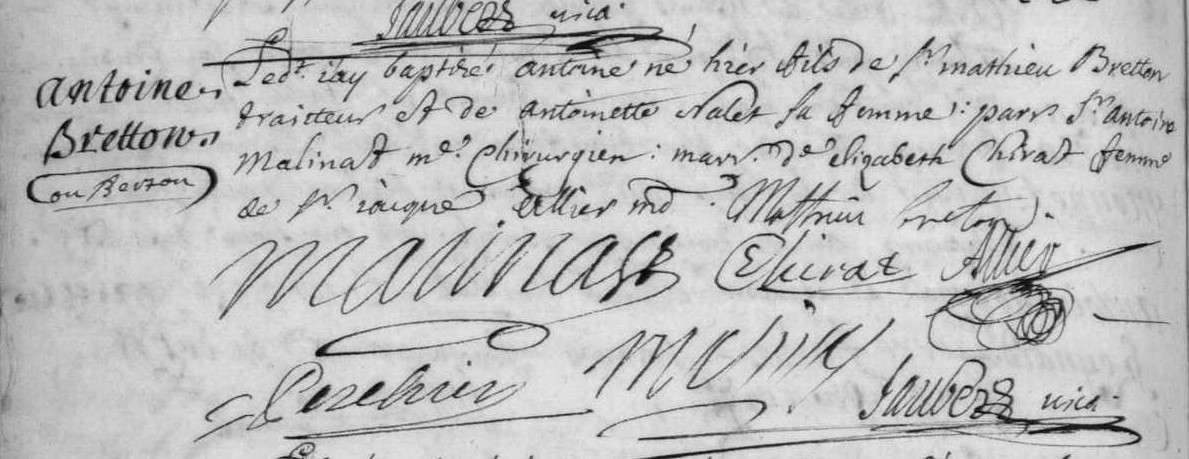 Jaubert vica.
Antoine
Bretton
ou Berton
Ledt. i'ay baptisé antoine né hier fils de sr. mathieu Bretton
traitteur et de antoinette Nalet sa femme : parr. sr. antoine
Malinast me. Chirurgien : marr. de. elizabeth Chirat femme
de sr. iacque Allier md. Mathieu breton
Malinast Chirat Allier
Jaubert vica.